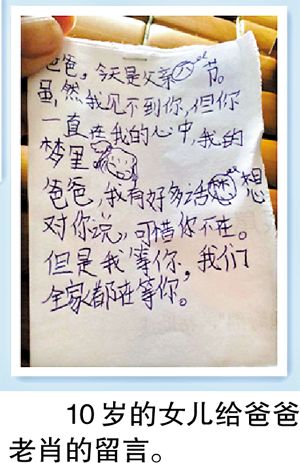 爸爸,今天是父亲节。
虽然我见不到你,但你
一直在我的心中,我的
梦里
爸爸,我有好多话想
对你说,可惜你不在。
但是我等你,我们
全家都在等你。
10岁的女儿给爸爸
老肖的留言。